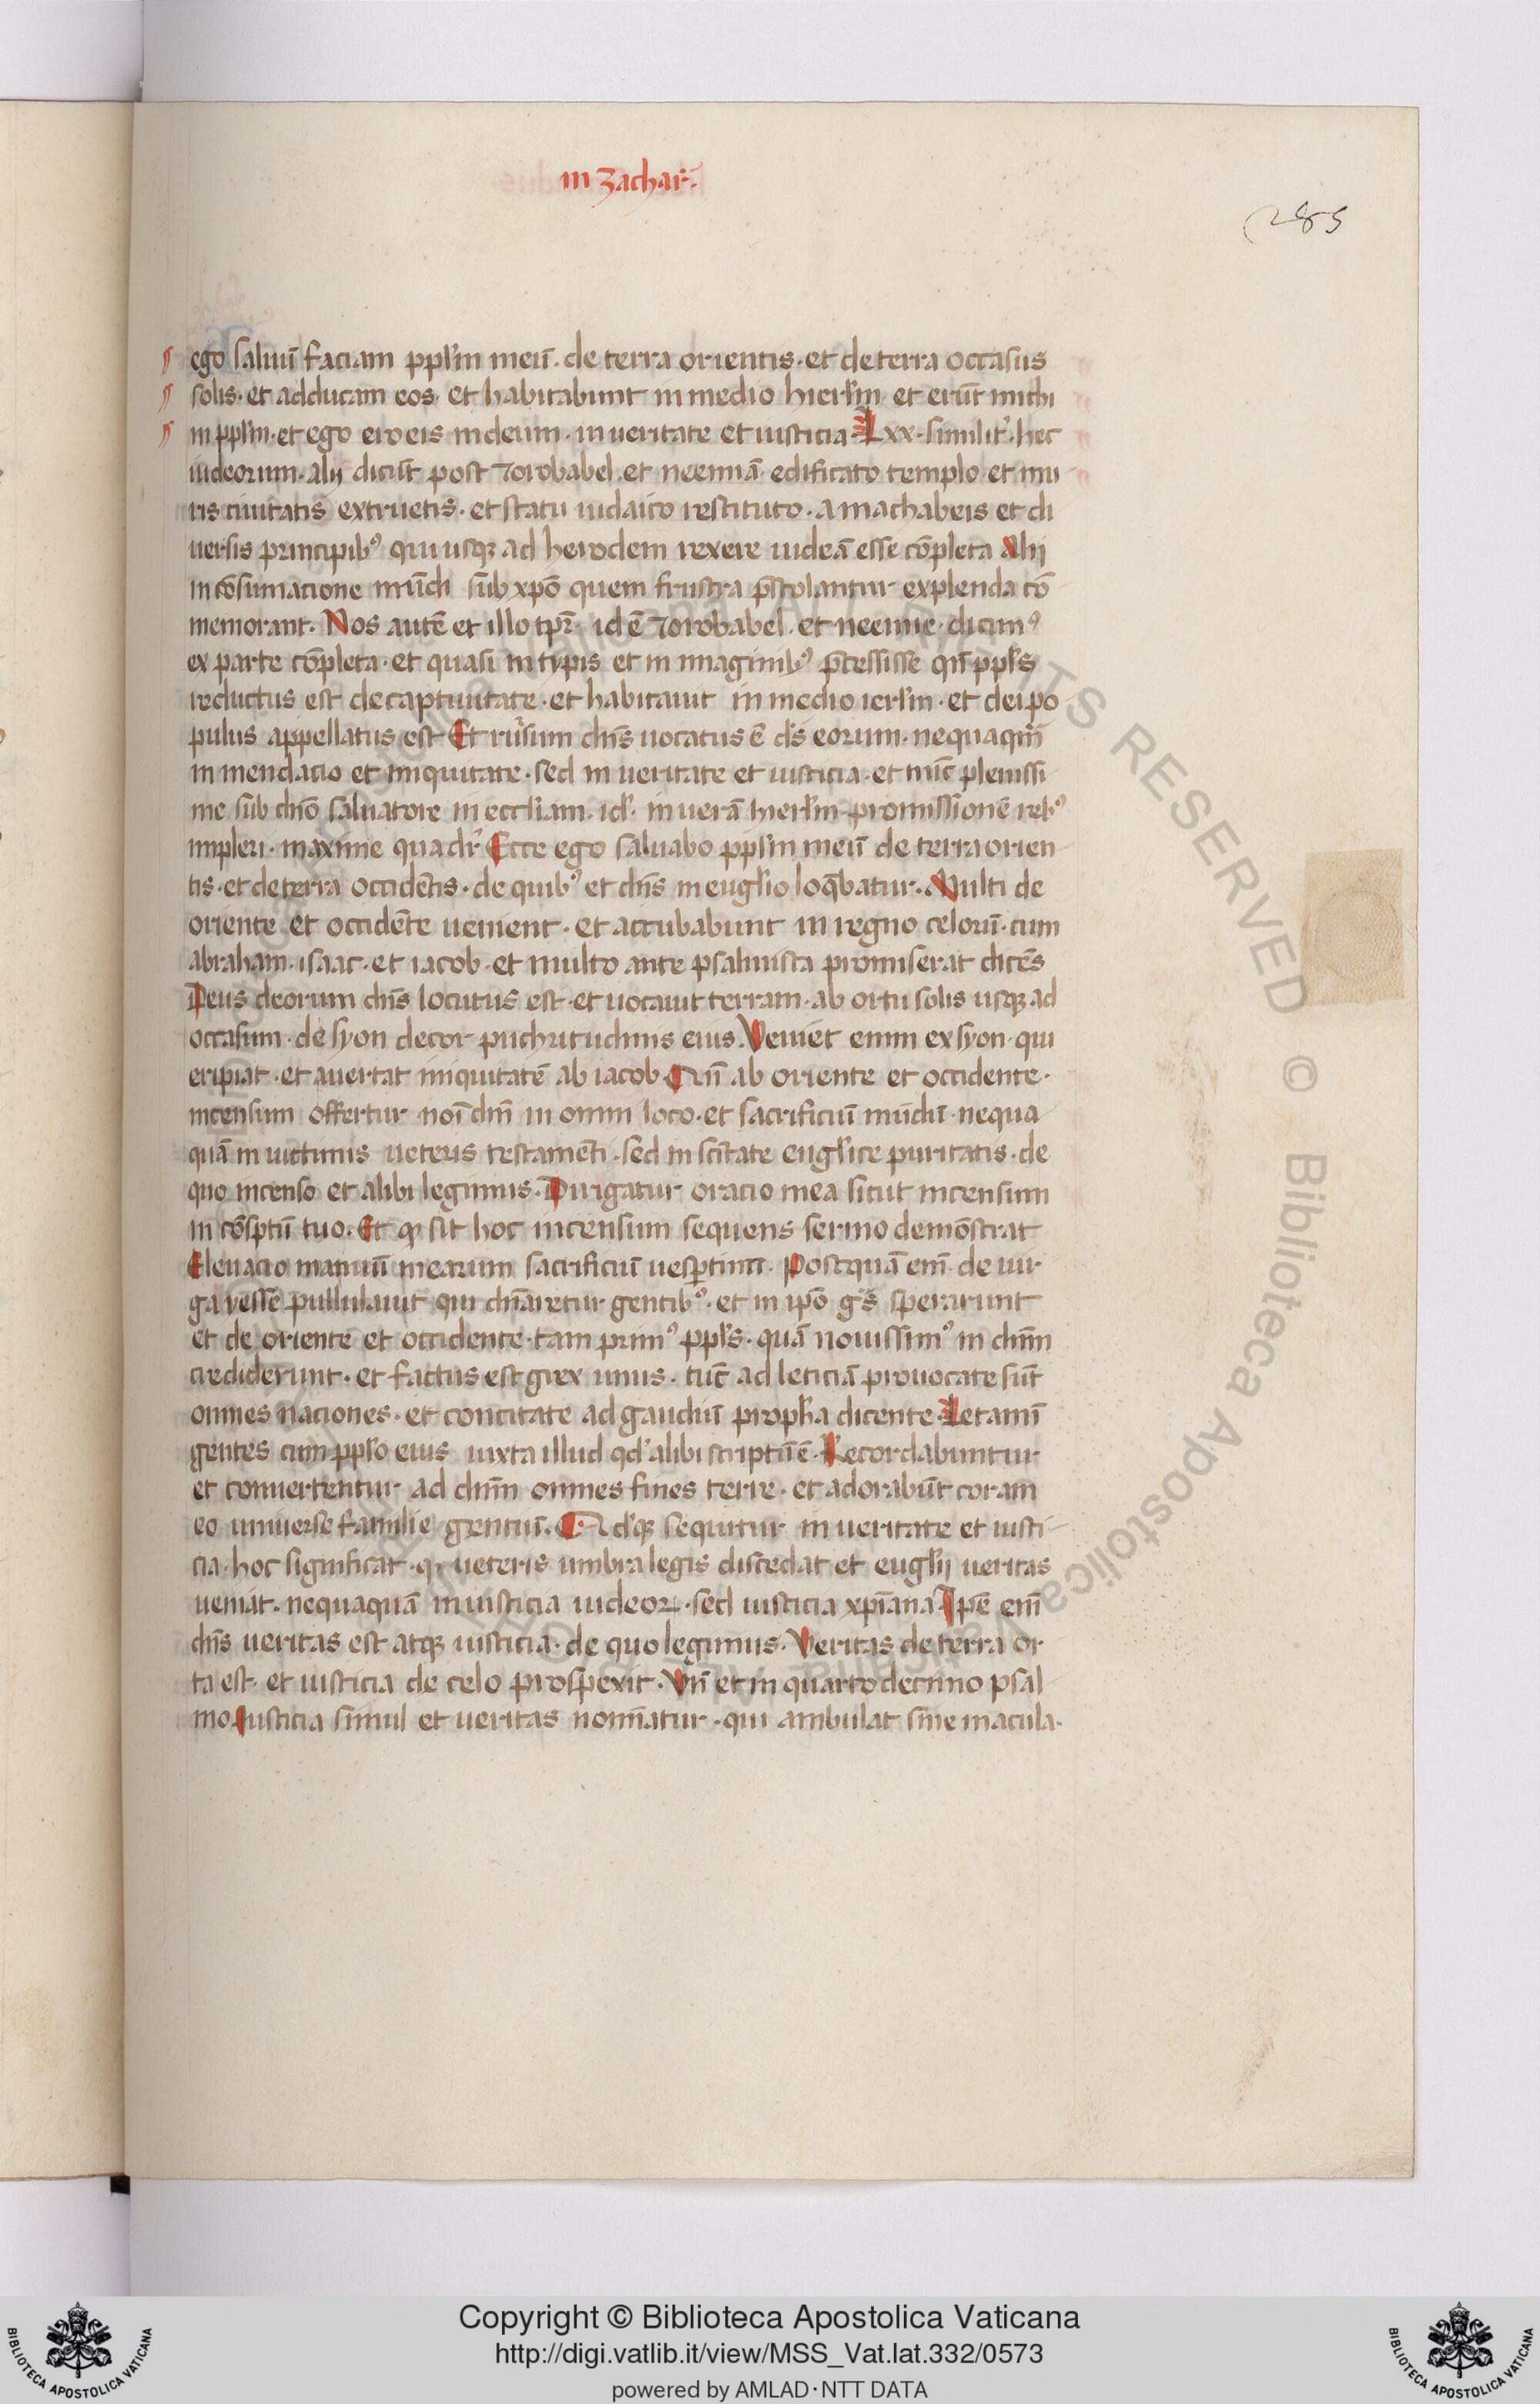 in Zachar̄.
285
ego saluū faciam ppl'm meū. de terra orientis. et de terra occasus
solis. et adducam eos. et habitabunt in medio hierl'm. et erūt michi
in ppl'm. et ego ero eis in deum. in ueritate et iusticia. Lxx. similit'. hec
iudeorum. alij dicūt post Zorobabel. et neemiā. edificato templo. et mu
ris ciuitatis extructis. et statu iudaico restituto. a machabeis et di
uersis principibꝰ qui usqꝫ ad herodem rexere iudeā esse cōpleta Alij
in cōsumacione mūdi sub xpō quem frustra p̄stolantur explenda cō
memorant. Nos autē et illo tpr̄. id ē Zorobabel. et neemie. dicimꝰ
ex parte cōpleta. et quasi in typis et in imaginibꝰ p̄cessisse qn̄ ppl's
reductus est de captiuitate. et habitauit in medio ierl'm. et dei po
pulus appellatus est Et rursum dn̄s uocatus ē ds̄ eorum. nequaqm̄
in mendacio et iniquitate. sed in ueritate et iusticia. et nūc plenissi
me sub dn̄o saluatore in eccl'iam. id'. in uerā hierl'm promissionē rebꝰ
impleri. maxime qua dr̄ Ecce ego saluabo ppl'm meū de terra orien
tis. et de terra occidētis. de quibꝰ et dn̄s in eugl'io loq̄batur. Multi de
oriente et occidēte uenient. et accubabunt in regno celorū. cum
abraham. isaac. et iacob. et multo ante psalmista promiserat dicēs
Deus deorum dn̄s locutus est. et uocauit terram. ab ortu solis usqꝫ ad
occasum. de syon decor puchritudinis eius. Veniet enim ex syon. qui
eripiat. et auertat iniquitatē ab iacob. Qn̄ ab oriente et occidente.
incensum offertur noī dn̄i in omni loco. et sacrificiū mūdū. nequa
quā in uictimis ueteris testamēti. sed in sc̄itate eugl'ice puritatis. de
quo incenso et alibi legimus. Dirigatur oracio mea sicut incensum
in cōsptū tuo. Et qꝫ sit hoc incensum sequens sermo demōstrat
Eleuacio manuū mearum sacrificiū uesp̄tinū. Postquā enī. de uir
ga yesse pullulauit qui dn̄aretur gentibꝰ. et in ipō gēs sperarunt
et de oriente et occidente. tam primꝰ ppl's. quā nouissimꝰ in dn̄m
crediderunt. et factus est grex unus. tūc ad leticiā prouocate sūt
omnes naciones. et concitate ad gaudiū proph'a dicente. Letamī
gentes cum ppl'o eius iuxta illud qd' alibi scriptū ē. Recordabuntur
et conuertentur ad dn̄m omnes fines terre. et adorabūt coram
eo uniuerse familie gentiū. Qd'qꝫ sequitur in ueritate et iusti
cia. hoc significat. qꝫ ueteris umbra legis discedat et eugl'ij ueritas
ueniat. nequaquā in iusticia iudeoꝝ. sed iusticia xp̄iana. Ipē enī
dn̄s ueritas est atqꝫ iusticia. de quo legimus. Veritas de terra or
ta est. et iusticia de celo prospexit. Vn̄ et in quarto decimo psal
mo. Iusticia simul et ueritas nomīatur. qui ambulat sine macula.
ALL RIGHTS RESERVED © Biblioteca Apostolica Vaticana
BIBLIOTECA APOSTOLICA VATICANA
Copyright © Biblioteca Apostolica Vaticana
http://digi.vatlib.it/view/MSS_Vat.lat.332/0573
powered by AMLAD·NTT DATA
BIBLIOTECA APOSTOLICA VATICANA